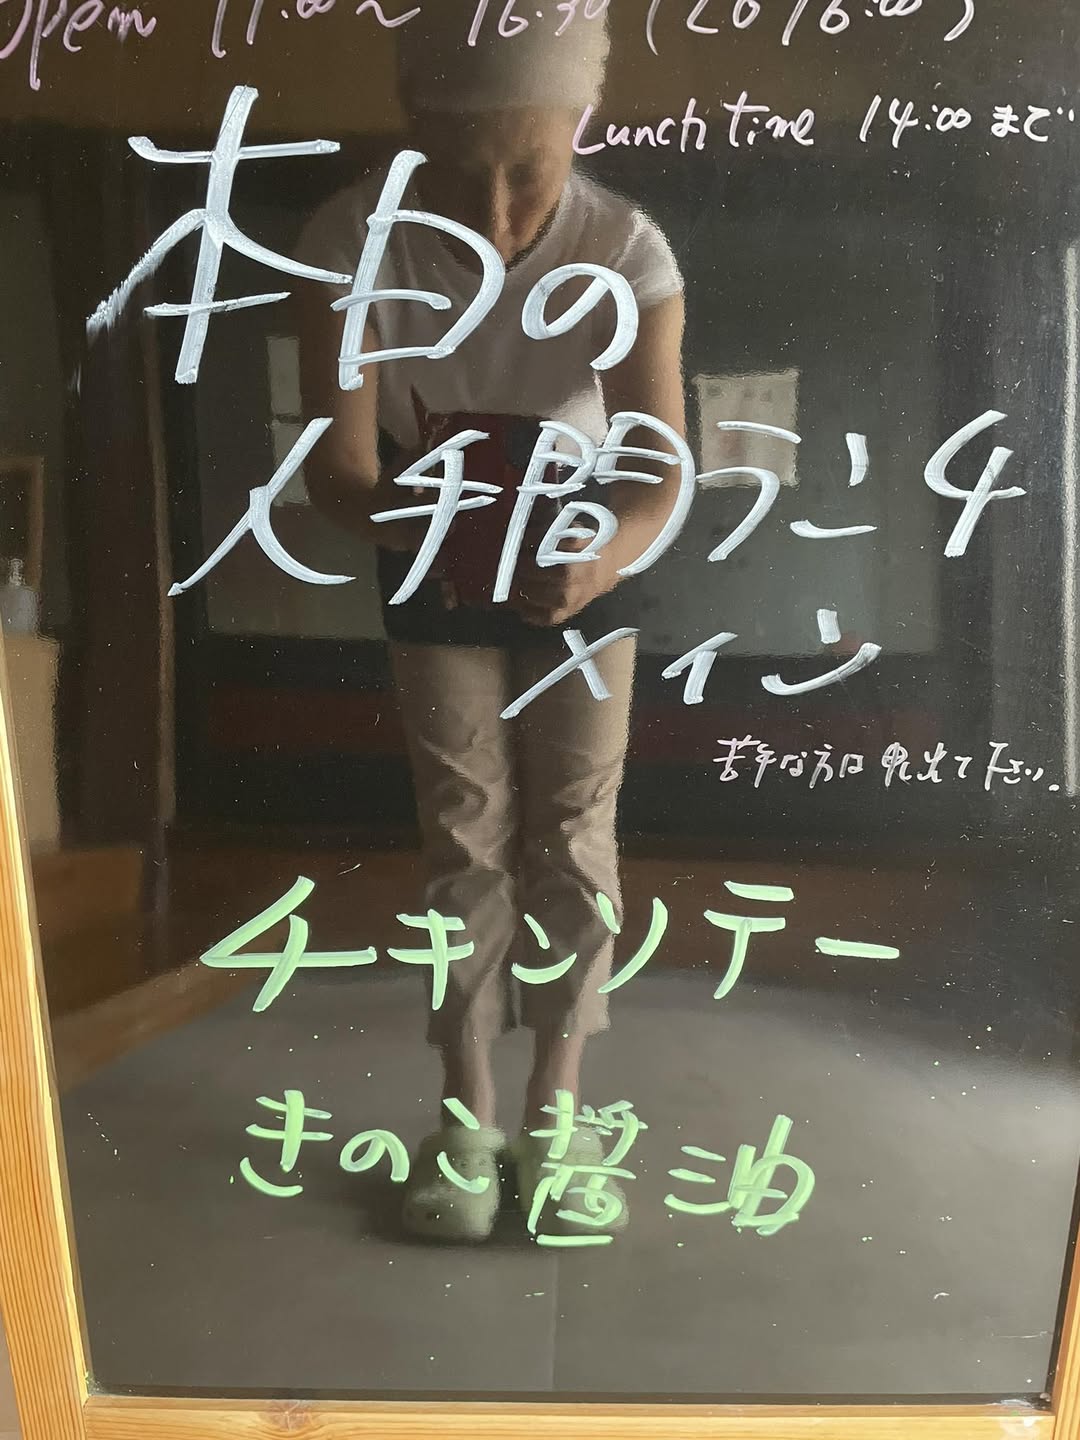 Open 11:00〜16:30 (LO 16:00)
Lunch time 14:00 まで
本日の
人手間ランチ
メイン
苦手な方は申出て下さい.
チキンソテー
きのこ醤油